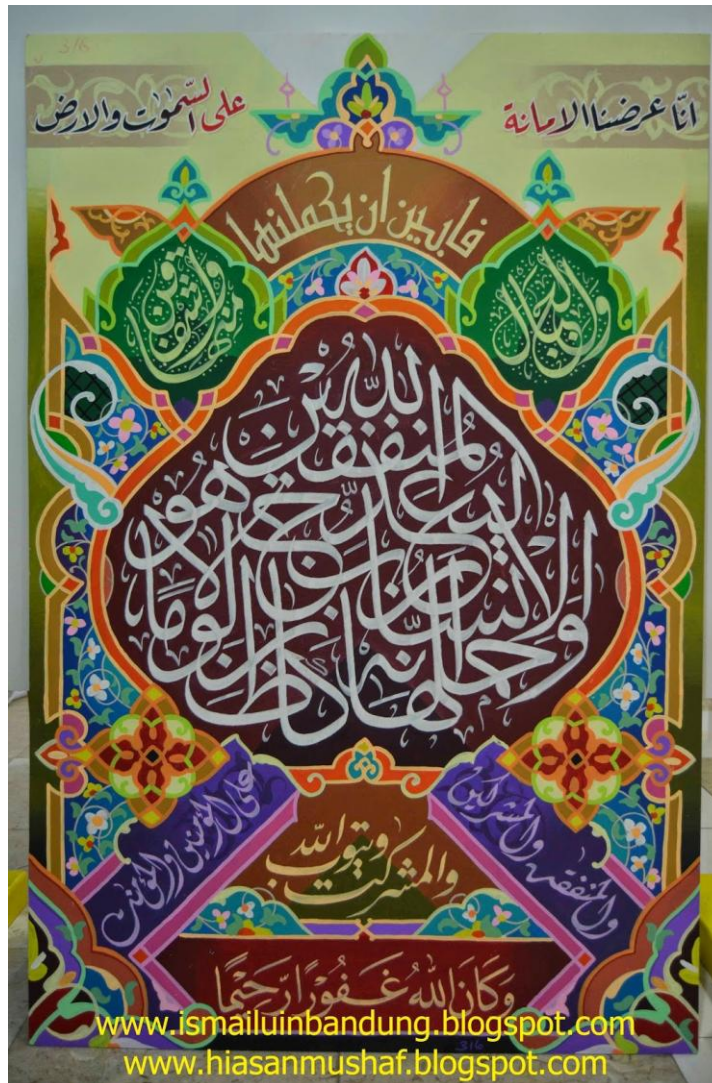 316
انّا عرضنا الامانة
على السّموت والارض
والجبال
فابين ان يحملنها
واشفقن منها
وحملها الانسان انه كان ظلوما جهولا ليعذب الله المنفقين
والمنفقت والمشركين
والمشركت ويتوب الله
على المؤمنين والمؤمنت
وَكَانَ اللهُ غَفُوْرًا رَّحِيْمًا
www.ismailuinbandung.blogspot.com
316
www.hiasanmushaf.blogspot.com